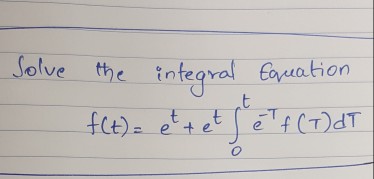 Solve the integral Equation
f(t) = e^t + e^t ∫_0^t e^{-T} f(T) dT